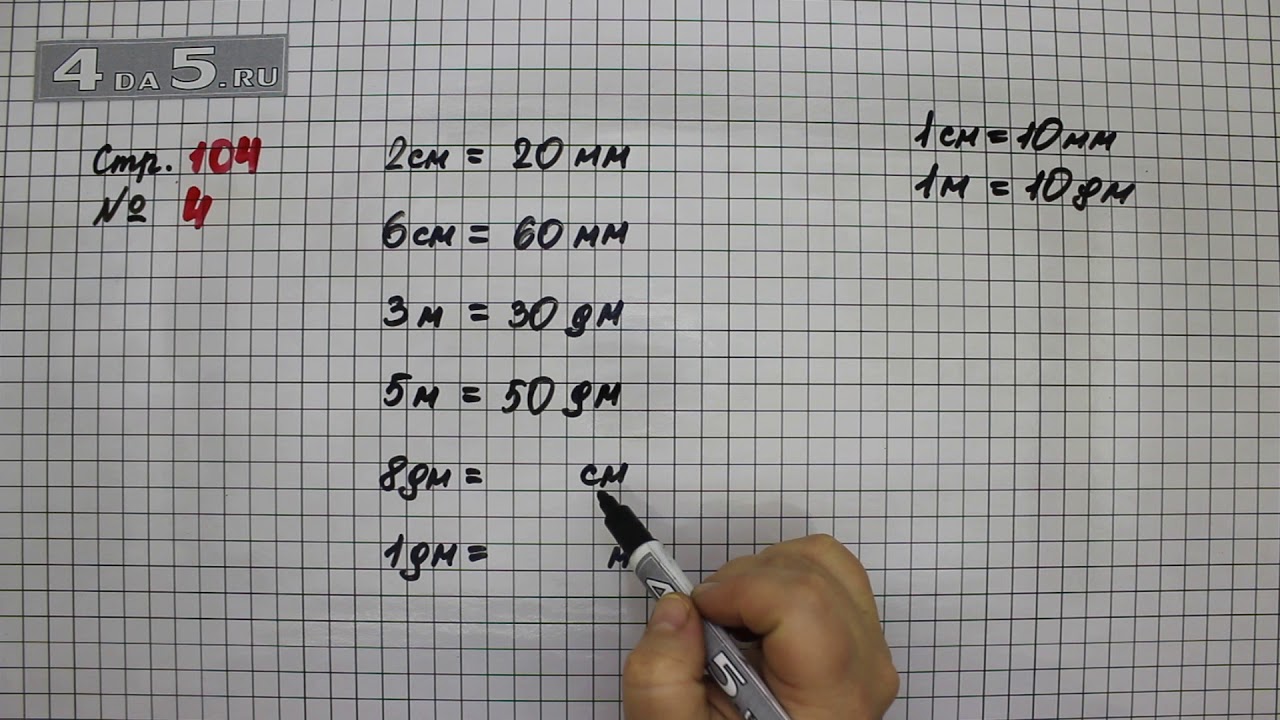 4DA5.RU
Стр. 104
№ 4
2см = 20 мм
6см = 60 мм
3м = 30 дм
5м = 50 дм
8дм = см
1дм = м
1см = 10мм
1м = 10дм
5